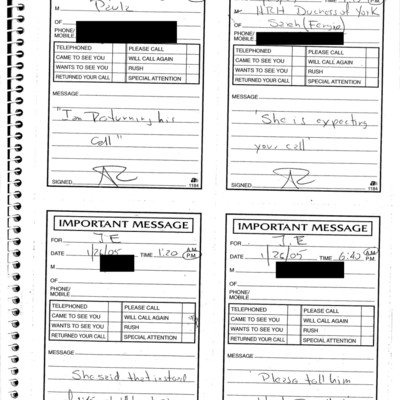 M Paula
OF
PHONE/
MOBILE
TELEPHONED PLEASE CALL
CAME TO SEE YOU WILL CALL AGAIN
WANTS TO SEE YOU RUSH
RETURNED YOUR CALL SPECIAL ATTENTION
MESSAGE
"I am Returning his
call"
SIGNED
1184
M HRH Duchess of York
OF Sarah (Fergie)
PHONE/
MOBILE
TELEPHONED PLEASE CALL
CAME TO SEE YOU WILL CALL AGAIN
WANTS TO SEE YOU RUSH
RETURNED YOUR CALL SPECIAL ATTENTION
MESSAGE
"She is expecting
your call"
SIGNED
1184
IMPORTANT MESSAGE
FOR J.E
DATE 1/26/05 TIME 1:20 A.M. P.M.
M
OF
PHONE/
MOBILE
TELEPHONED PLEASE CALL
CAME TO SEE YOU WILL CALL AGAIN
WANTS TO SEE YOU RUSH
RETURNED YOUR CALL SPECIAL ATTENTION
MESSAGE
She said that instead
IMPORTANT MESSAGE
FOR J.E
DATE 1/26/05 TIME 6:40 A.M. P.M.
M
OF
PHONE/
MOBILE
TELEPHONED PLEASE CALL
CAME TO SEE YOU WILL CALL AGAIN
WANTS TO SEE YOU RUSH
RETURNED YOUR CALL SPECIAL ATTENTION
MESSAGE
"Please tell him